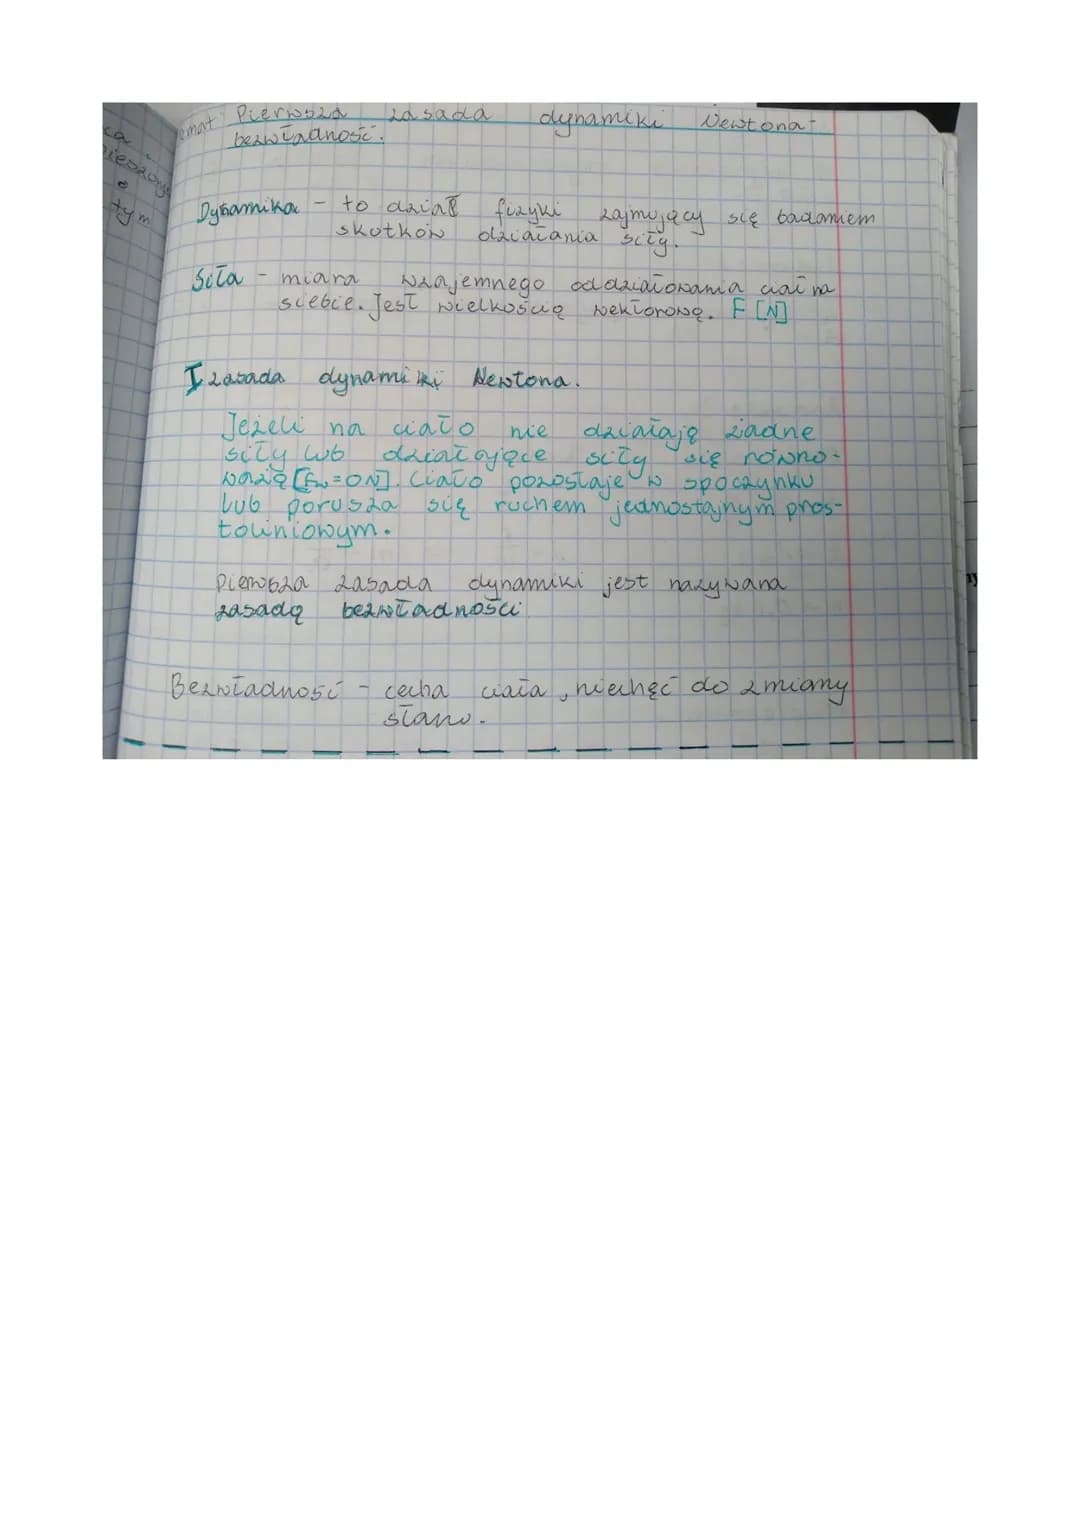 Temat Pierwsza zasada dynamiki Newtona-
bezwładność.
ca
e
tym
Dynamika - to dział fizyki zajmujący się badaniem
skutków działania siły.
Siła - miara wzajemnego oddziaływania ciał na
siebie. Jest wielkością wektorową. F [N]
I zasada dynamiki Newtona.
Jeżeli na ciało nie działają żadne
siły lub działające siły się równo-
ważą [Fw=0N]. Ciało pozostaje w spoczynku
lub porusza się ruchem jednostajnym pros-
toliniowym.
Pierwsza zasada dynamiki jest nazywana
zasadą bezwładności
Bezwładność - cecha ciała, niechęć do zmiany
stanu.